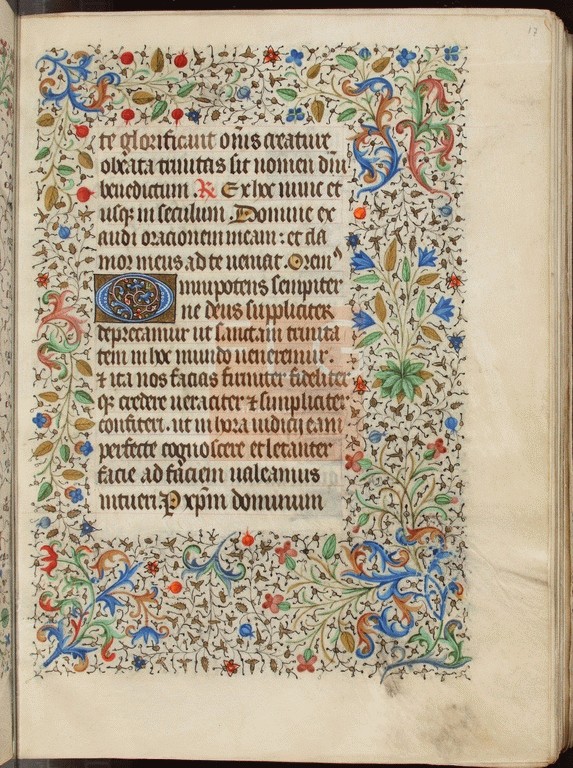 17
te glorificant oĩnis creature
o beata trinitas sit nomen dñi
benedictum R Ex hoc nunc et
usq; in seculum. Domine ex
audi oracionem meam: et cla
mor meus ad te veniat. Orem⁹
Omnipotens sempiter
ne deus suppliciter
deprecamur ut sanctam trinita
tem in hoc mundo veneremur.
& ita nos facias firmiter fideliter
q; credere veraciter & simpliciter
confiteri. ut in hora iudicii eam
perfecte cognoscere et letanter
facie ad faciem valeamus
intueri. P xp̃m dominum